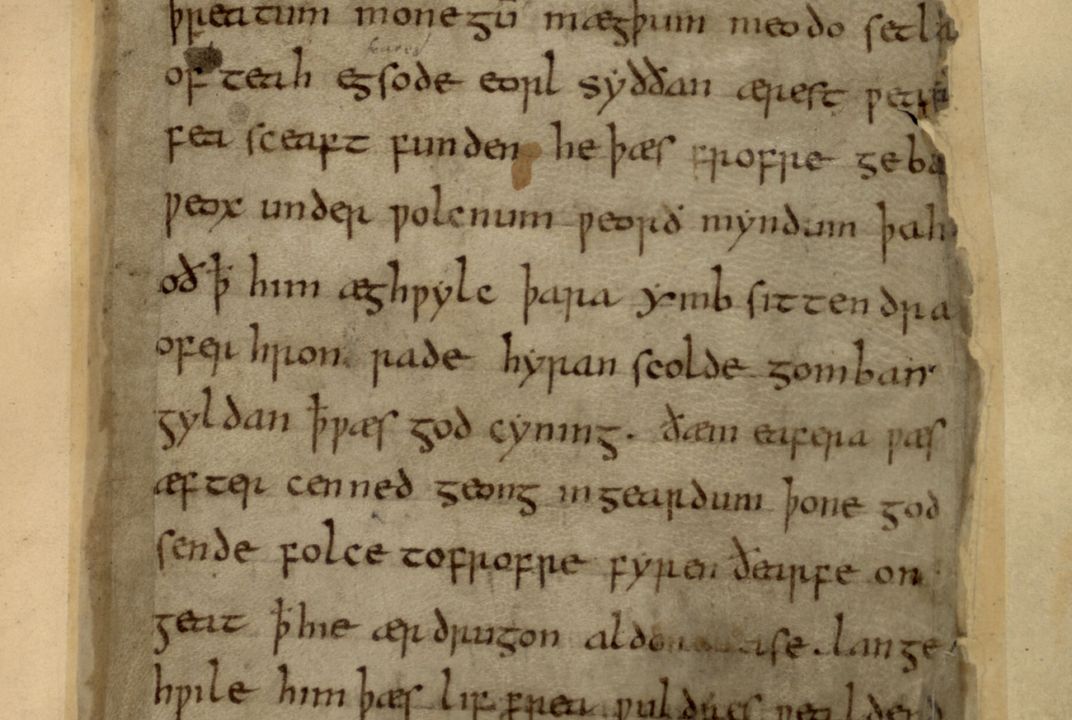 þreatum monegū mægþum meodo setla
of teah egsode eorl syððan ærest
fea sceaft funden he þæs frofre geba
ƿeox under ƿolcnum ƿeorð myndum þah
oð ꝥ him æghƿylc þara ymb sittendra
ofer hron rade hyran scolde gomban
gyldan ꝥ ƿæs god cyning. ðæm eafera ƿæs
æfter cenned geong in geardum þone god
sende folce tofrofre fyren ðearfe on
geat ꝥ hie ær drugon lange
hƿile him þæs lif frea ƿuldres ƿealdend